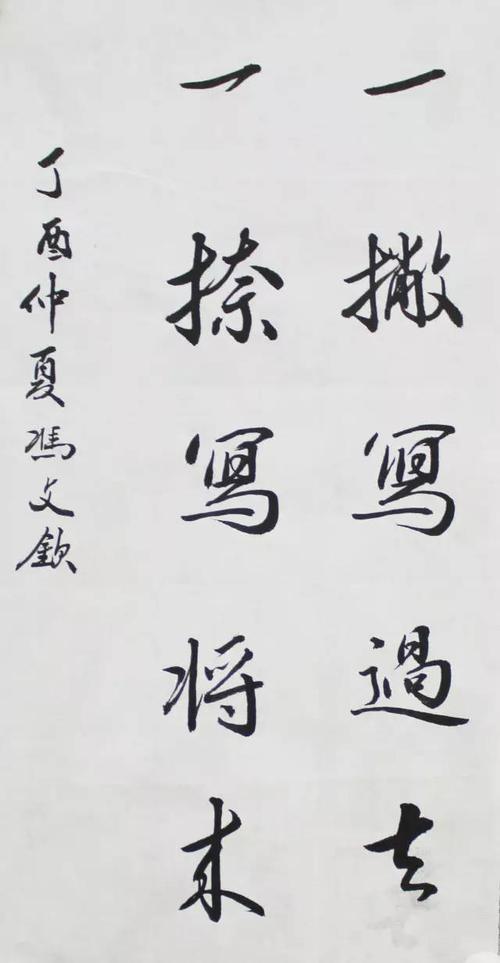 一撇寫過去
一捺寫将来
丁酉仲夏馮文欽